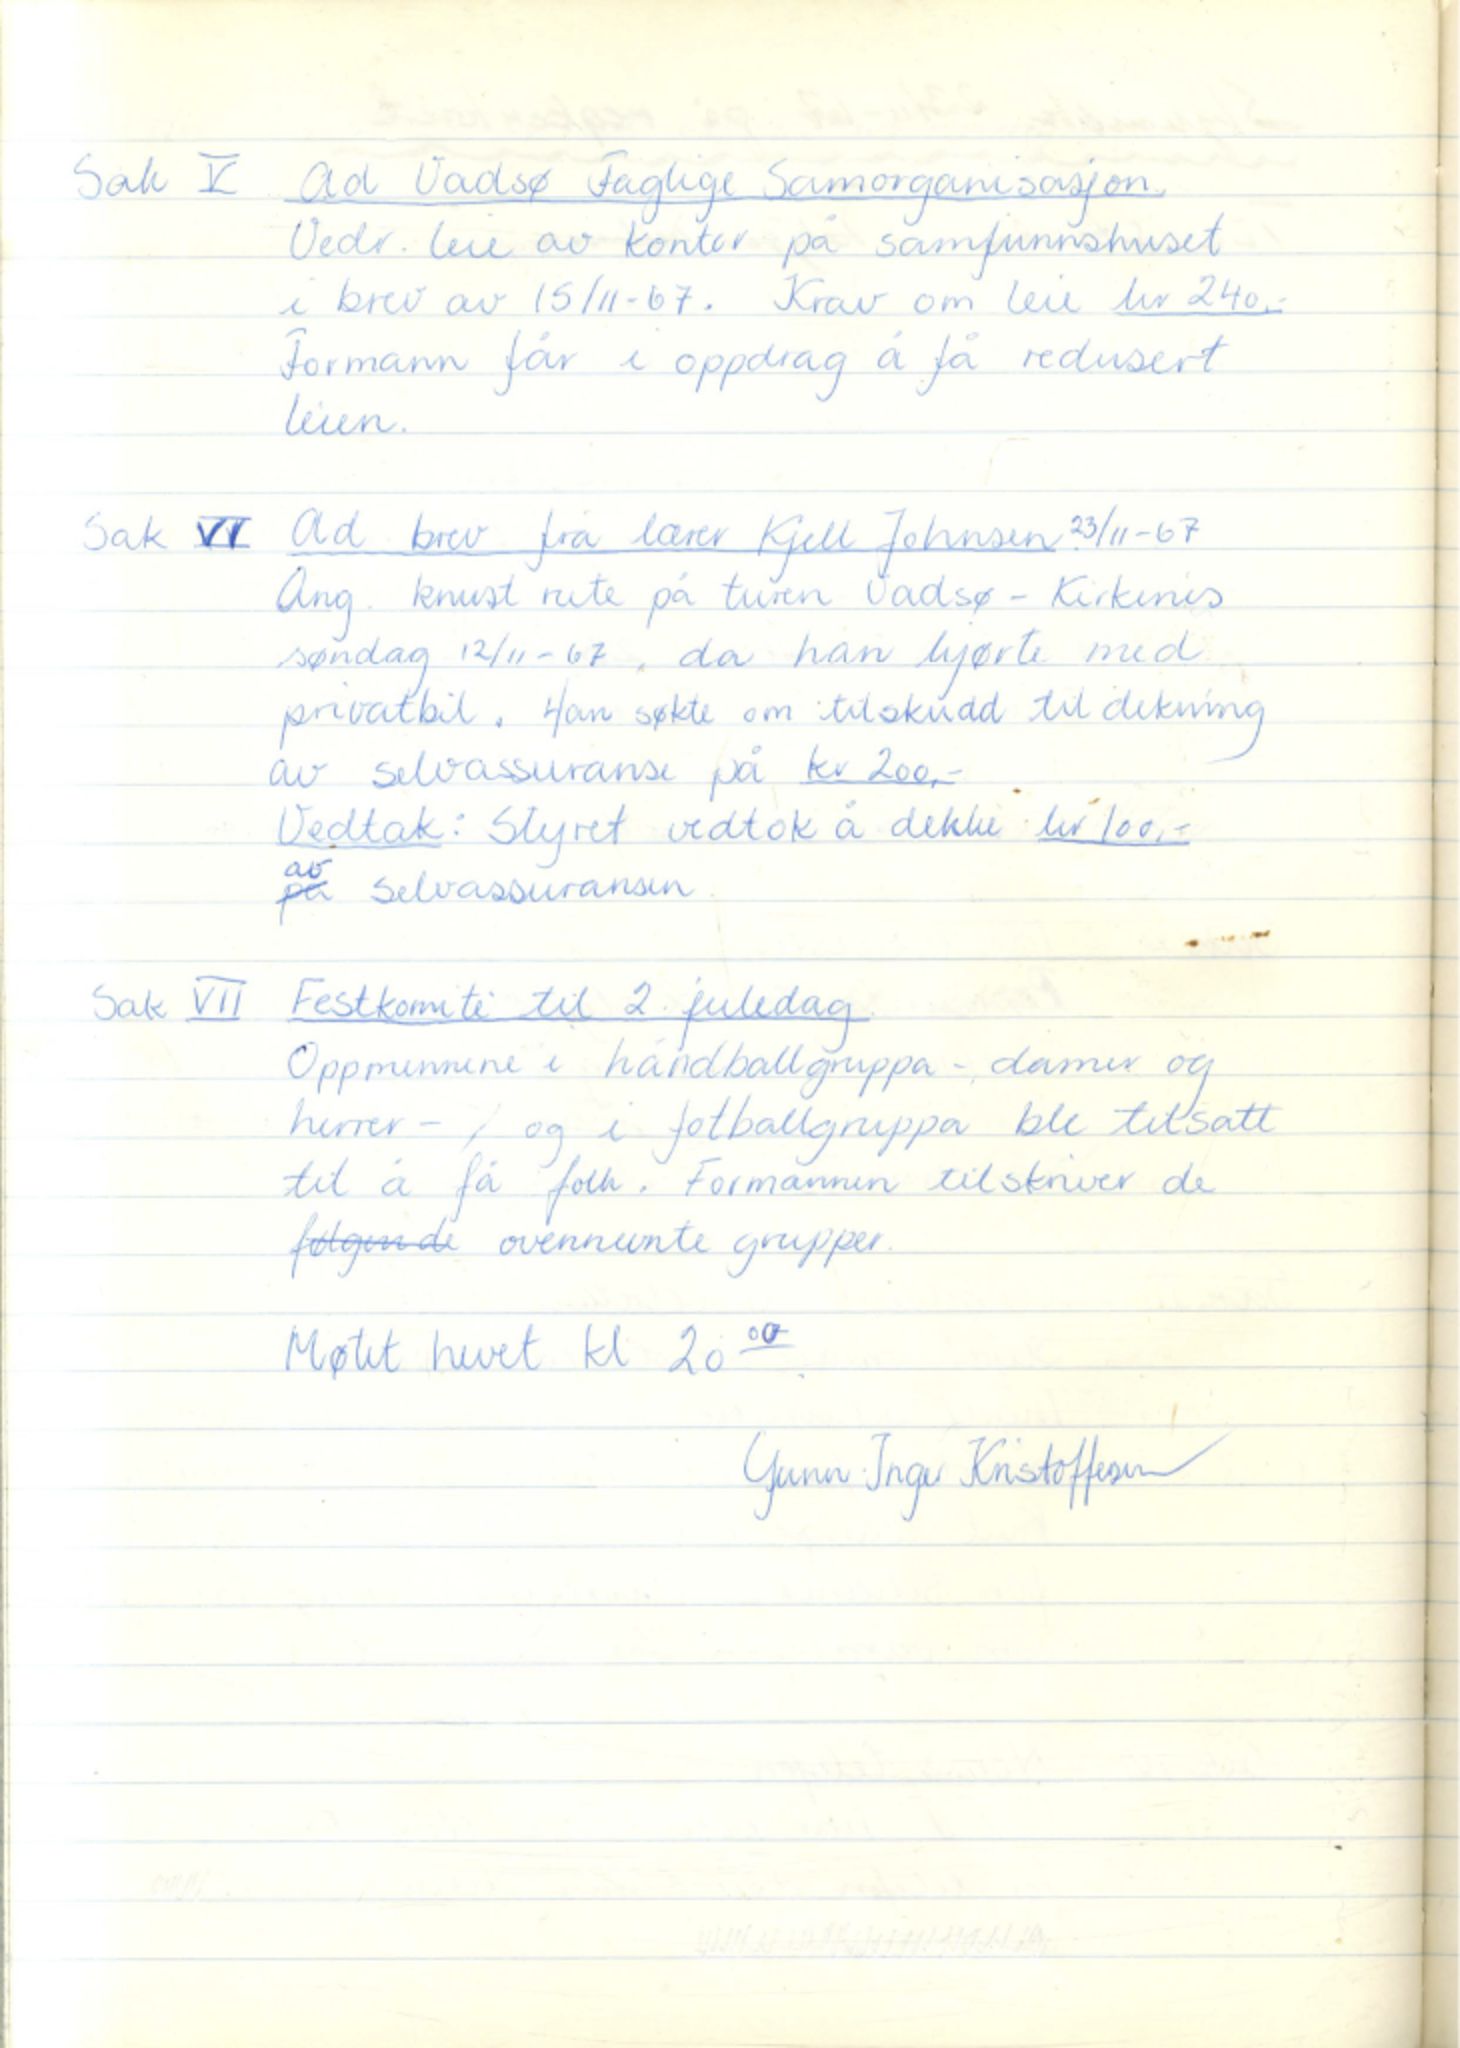 Sak V Ad Vadsø Faglige Samorganisasjon.
Vedr. leie av kontor på samfunnshuset
i brev av 15/11-67. Krav om leie kr 240,-
Formann får i oppdrag å få redusert
leien.
Sak VI Ad brev fra lærer Kjell Johnsen 23/11-67
Ang. knust rute på turen Vadsø - Kirkenes
søndag 12/11-67, da han kjørte med
privatbil. Han søkte om tilskudd til dekning
av selvassuranse på kr 200,-
Vedtak: Styret vedtok å dekke kr 100,-
av
på selvassuransen
Sak VII Festkomite til 2. juledag
Oppmennene i håndballgruppa - damer og
herrer -, og i fotballgruppa ble tilsatt
til å få folk. Formannen tilskriver de
følgende ovennevnte grupper.
Møtet hevet kl 20 00
Gunn Inger Kristoffersen